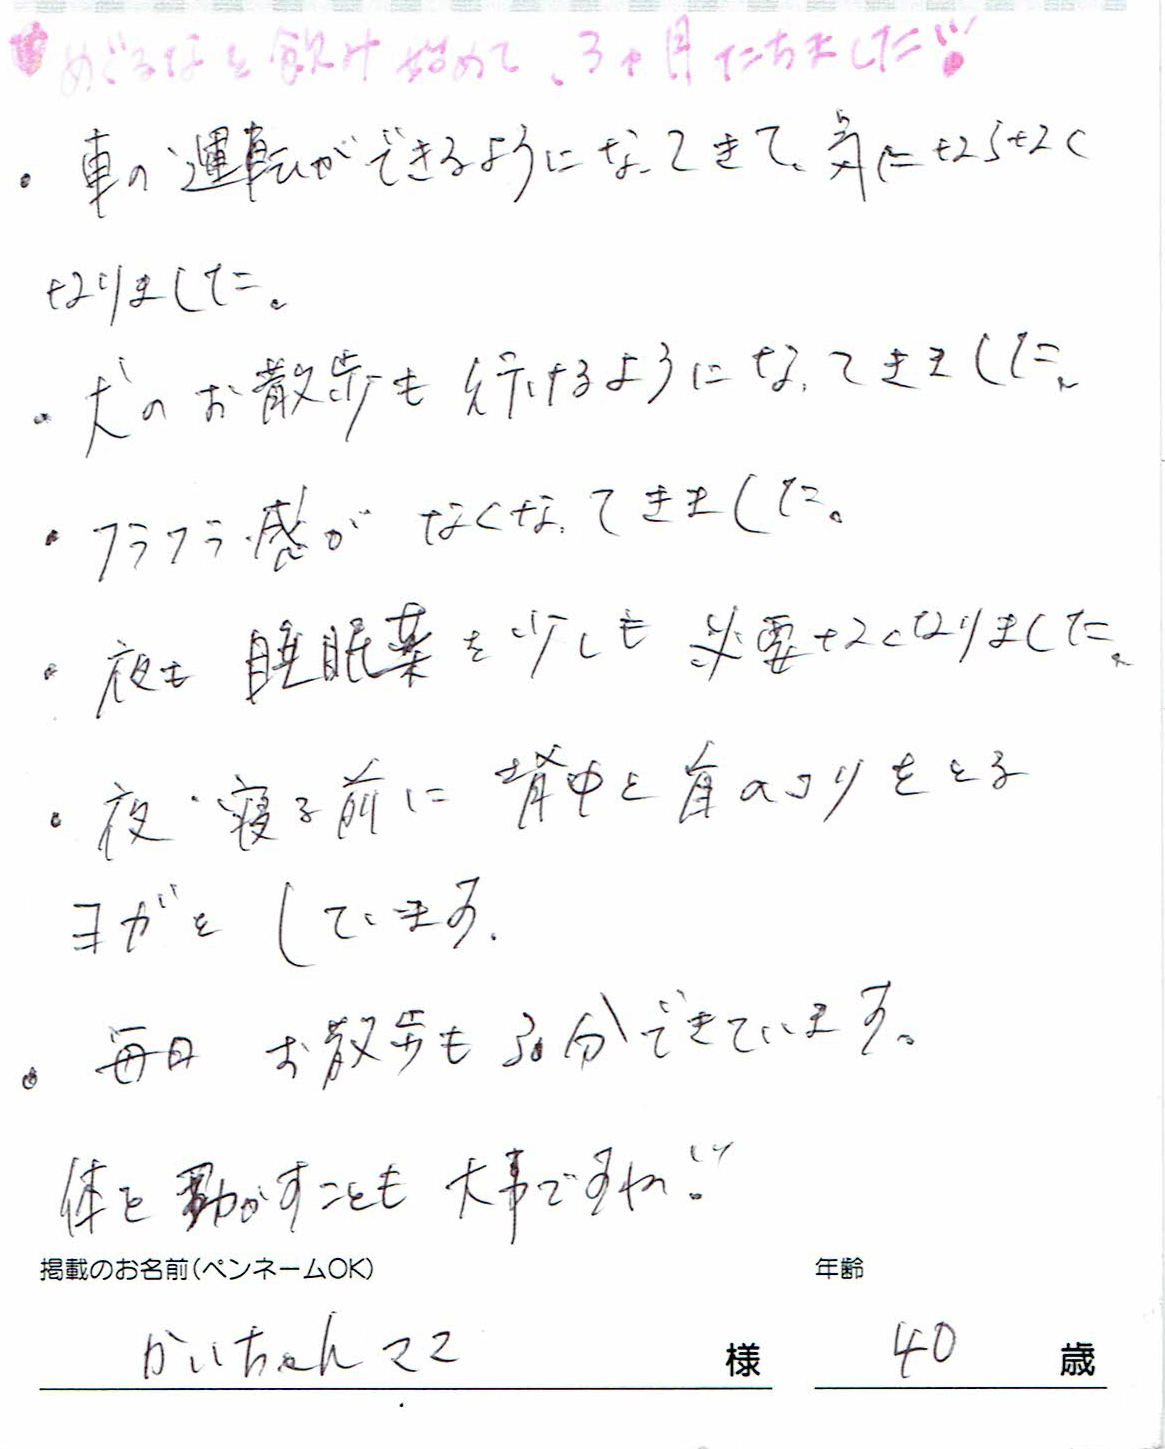 めぐるなを飲み始めて、3ヶ月たちました!!
・車の運転ができるようになってきて、気にならなく
なりました。
・犬のお散歩も行けるようになってきました。
・フラフラ感がなくなってきました。
・夜も睡眠薬を少しも必要なくなりました。
・夜・寝る前に背中と首のコリをとる
ヨガをしています。
・毎日 お散歩も30分できています。
体を動かすことも大事ですね!!
掲載のお名前(ペンネームOK) 年齢
かいちゃんママ 様 40 歳